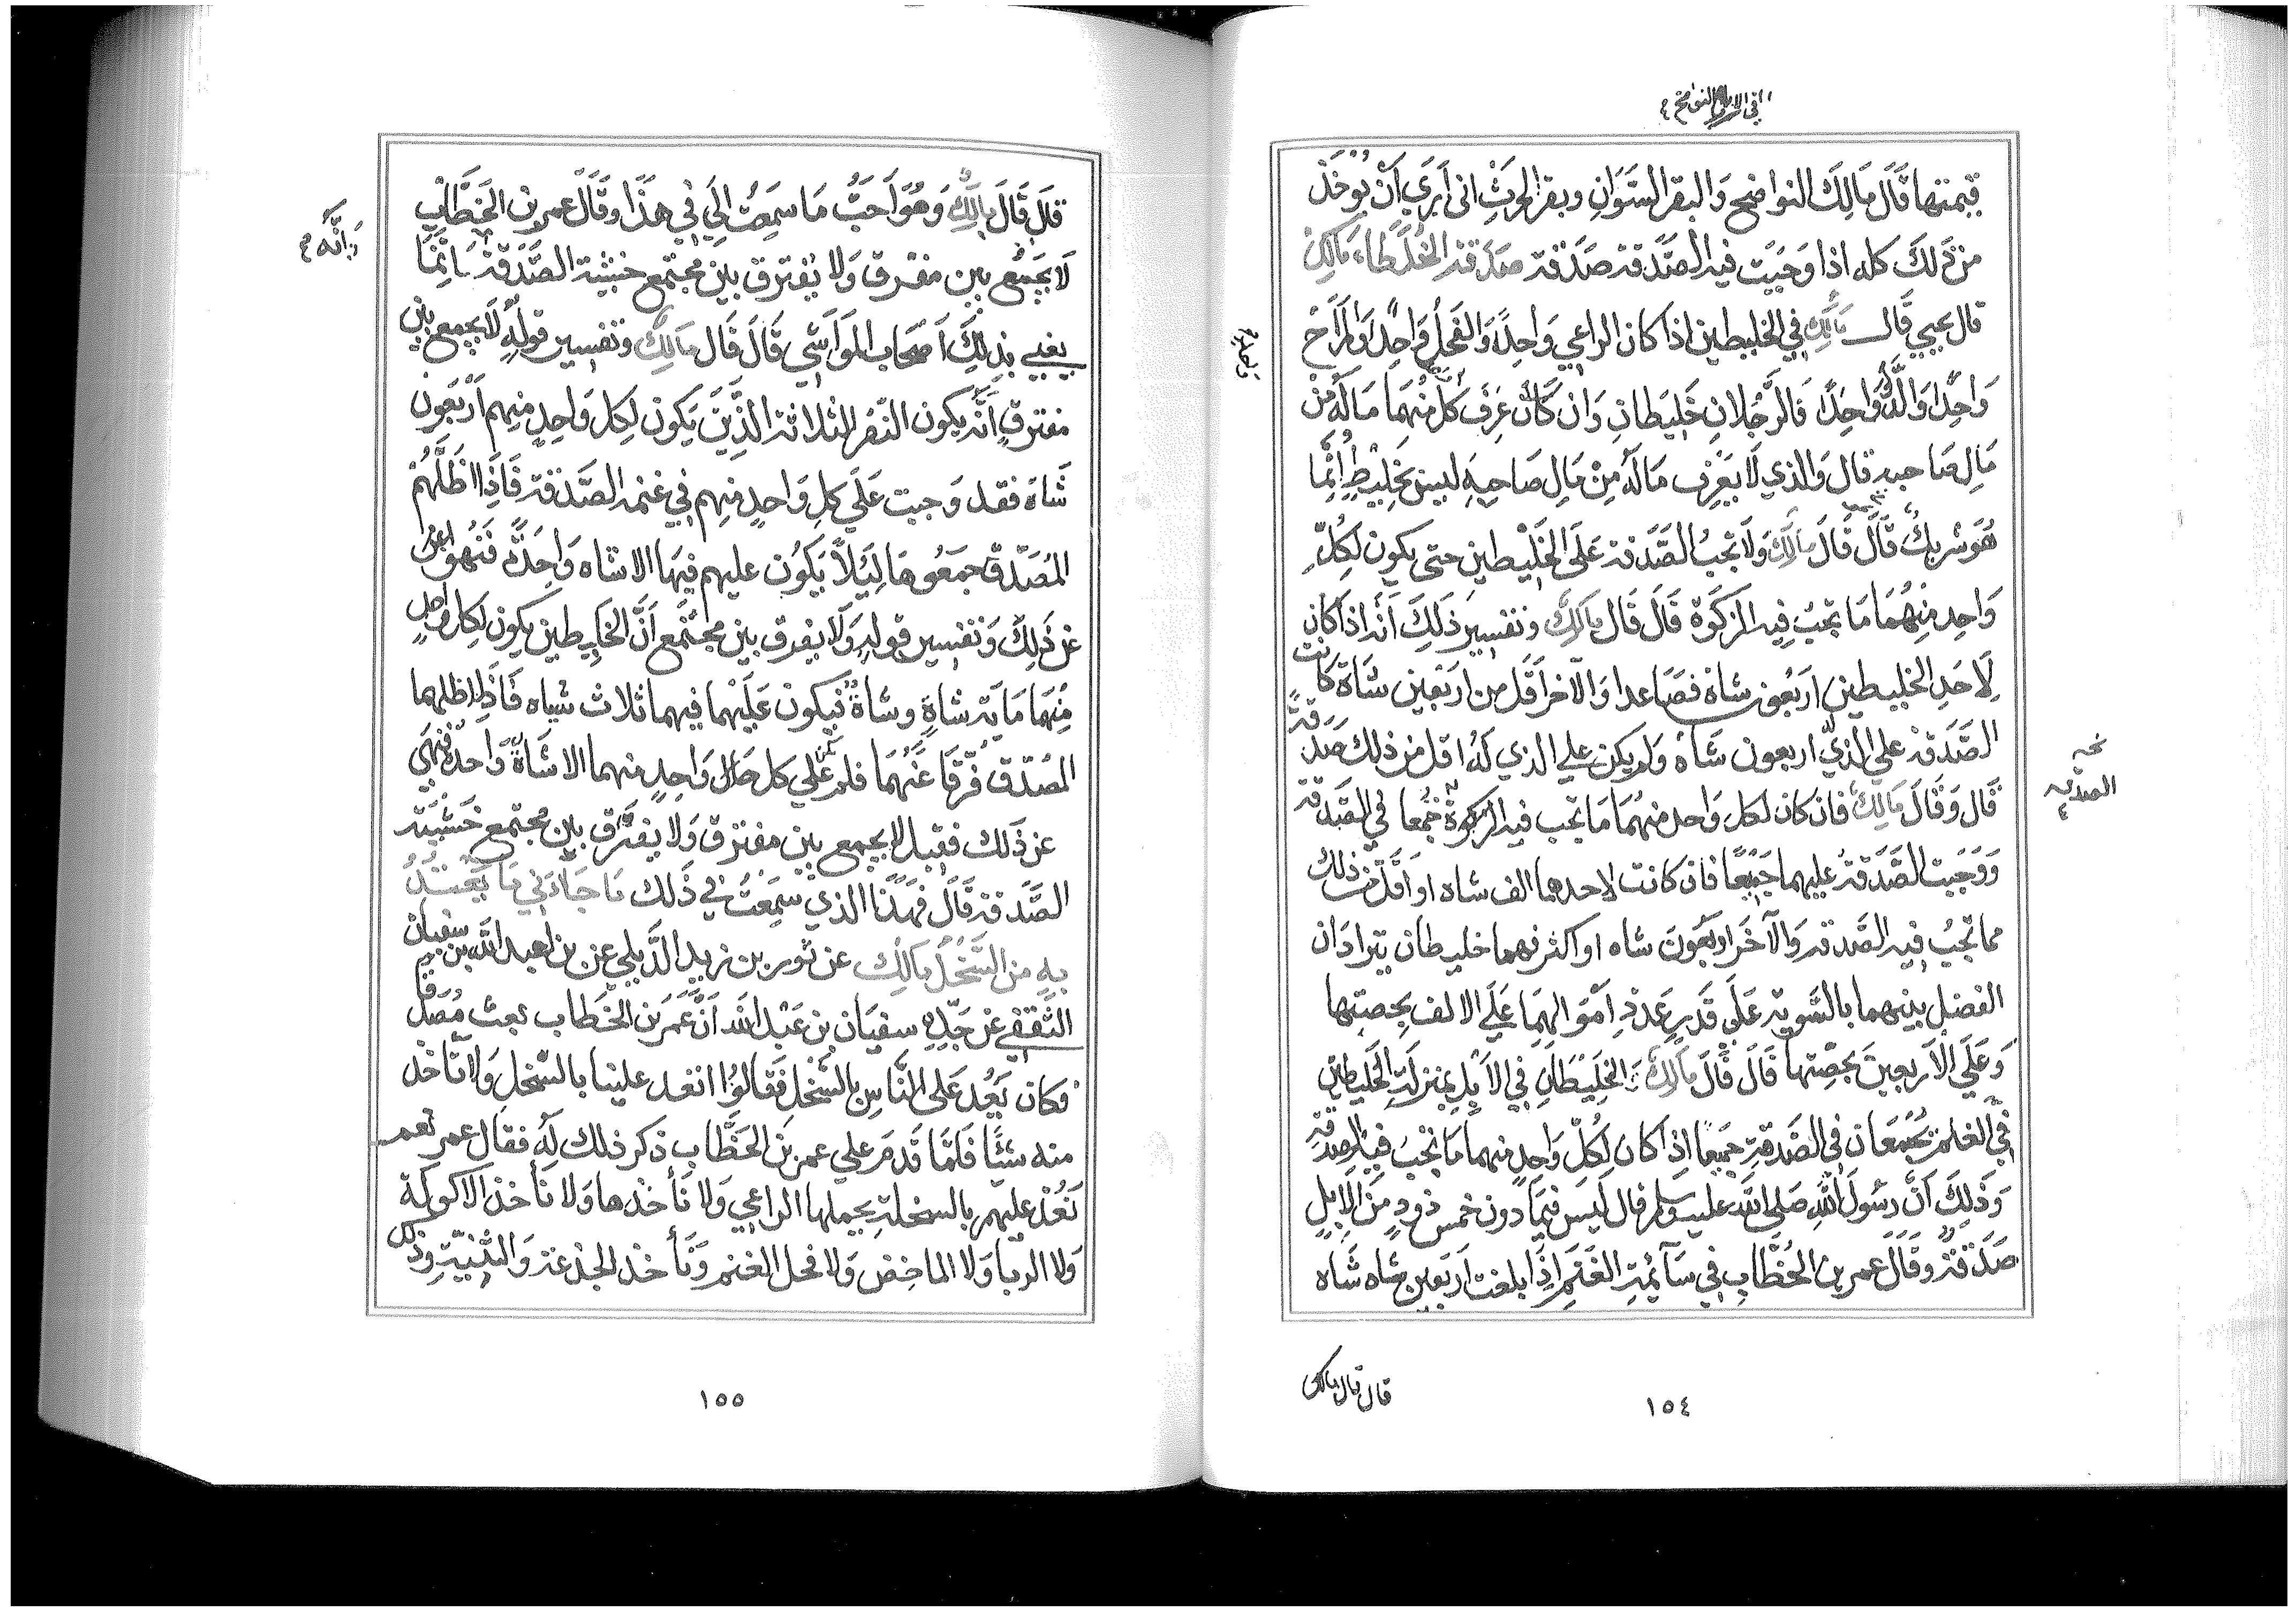 في الابل النواضح
قيمتها قَالَ مَالِك النواضح وَالبقر السَّوَانِ وبقر الحرثِ انى اَرَي اَنْ يوخَذ
من ذَلكَ كله اذا وَجَبَت فيه الصَّدَقة صَدَقة صَدَقة الخُلَطاء مَالِك
قال يحيي قَال مَالِك في الخليطين اذا كان الراعي وَاحِدًا وَالفَحلُ وَاحِدًا وَالمَرَاحُ
وَاحِدًا وَالدَّلْوُ وَاحِدًا فَالرَّجُلانِ خَلِيطَانِ وَان كَانَ عَرَفَ كل منهُمَا مَالَه مِنْ
مَالِ صَاحبه قال وَالذي لَا يَعْرِف مَالَه مِنْ مَالِ صَاحِبِهِ ليسَ بِخَلِيْطٍ اِنَّمَا
هُوَ شريكٌ قَالَ قَالَ مَالِك وَلَا تجبُ الصَّدَقة عَلَى الخَلِيْطين حتى يكون لكُلِّ
وَاحِد مِنْهُمَا مَا تجبُ فِيه الزكَوة قَالَ قَالَ مَالِك وَتفسيرُ ذَلِكَ اَنَّه اذا كان
لِاَحَدِ الخليطين اربَعُون شاة فصَاعدا وَالآخر اَقَل من اربَعين شَاة كَانَت
الصَّدَقة على الذي له اربعون شَاة وَلم يكن علي الذي لَهُ اقل من ذلك صَدَقَةٌ
قَال وَقَالَ مَالِك فان كان لكل وَاحد منهُمَا مَا تجب فيه الزكوة جُمعَا في الصَّدَقة
وَوَجَبَت الصَّدَقة عليهما جَميعًا فان كانت لاحدهما الف شاه او اَقَل من ذلك
مما تجبُ فيه الصَّدقة وَالآخر اربَعُونَ شاه او اكثر فهما خليطان يترادَان
الفضل بينهما بالسَّوية عَلَي قَدرِ عَدَدِ اَمْوَالِهِمَا عَلَي الالف بِحِصتها
وَعَلَي الاَربعينَ بحِصَّتها قَالَ قَالَ مَالِك الخَلِيْطَانِ في الاِبِلِ بمنزلَة الخَليطين
في الغنم يجتمعَان في الصَّدقة جَميعًا اِذا كَان لِكُلّ وَاحِدٍ منهما مَا تجبُ فِيه الصدقة
وَذَلِكَ اَنَّ رَسُولَ اللهِ صَلي الله عليه وسلم قال لَيسَ فيمَا دون خمس ذودٍ مِنَ الاِبِلِ
صَدَقَةٌ وَقَالَ عمر بن الخَطَّابِ في سَآئِمَةِ الغَنَمِ اِذَا بلغت اَربَعين شاه شَاه
واحد
نخـ الصدقه
قال قال مالك
١٥٤
قَالَ قَالَ مَالِك وَهُوَ اَحَبُّ مَا سَمِعتُ اِلَيَّ في هَذَا وَقَالَ عمر بن الخَطَّاب
لَا يجمَع بين مفترق وَلا يُفترق بين مجتمع خشية الصَّدَقة اِنَّمَا
يعني بذلِكَ اَصحَاب المَوَاشي قَالَ قَالَ مَالِك وَتفسير قولُه لَا يجمع بين
مفترقٍ اَنَّه يكون النَّفر الثلاثة الَّذينَ يَكون لِكل وَاحِدٍ منهم اَرْبَعُون
شَاة فقد وَجبت عَلَي كلِ وَاحِدٍ مِنهم في غنمه الصَّدَقة فَاِذَا اَظَلَّهُمْ
المُصَدّق جمَعُوهَا لِئَلاَّ يَكُون عليهم فِيهَا الا شاه وَاحِدَة فَنُهوا
عن ذَلِكَ وَتفسير قولِهِ وَلَا يفرق بين مجتمع اَنَّ الخَلِيطين يكون لكل واحدٍ
مِنْهمَا مَاية شاةٍ وشاةٌ فيكون عَلَيْهما فيهما ثلاث شياه فَاذا اظلهما
المُصَدّق فَرَّقَا غَنَمَهُمَا فلم يكن علي كل وَاحِدٍ منهما الا شَاةٌ وَاحدةٌ فنهي
عن ذَلك فقيل لا يجمع بين مفترق وَلا يفترق بين مجتمع خَشْيَة
الصَّدَقة قَالَ فَهَذَا الذي سَمِعْتُ في ذَلك مَا جَاءَ فِي مَا يُعْتَدُّ
بِهِ من السَّخْل مَالِك عن ثور بن زيد الدَّيلي عن بن لعبد الله بن سفيان
الثَّقَفي عن جَدِّه سفيَان بن عَبْدالله اَنَّ عُمَر بن الخَطاب بعث مُصَدِّقا
فكان يَعُدّ عَلى النَّاسِ بالسَّخل فَقَالُوا اتعد علينا بالسَّخلِ وَلا تاخذ
منه شَئًا فَلمَّا قَدمَ علي عمر بن الخَطَّاب ذكر ذلك لَه فقال عمر نعم
نَعُدّ عليهم بالسخلةِ يحملها الراعي وَلا نَأخذها وَلا نَأخذ الاكولَة
وَلا الرّبا وَلا الماخِض وَلا فحل الغنم وَنَأخذ الجذعة وَالثنيّة وذلك
انه
١٥٥